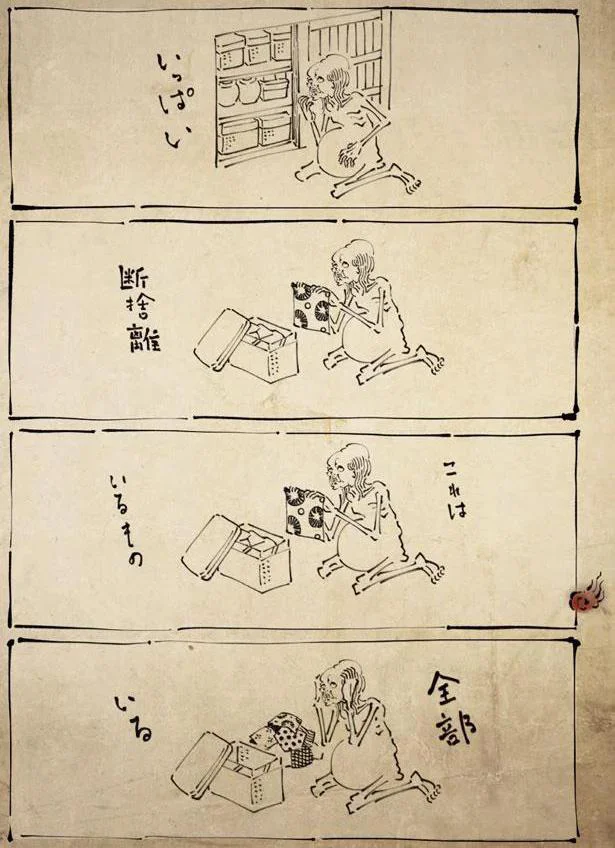 いっぱい
断捨離
これは
いるもの
全部
いる